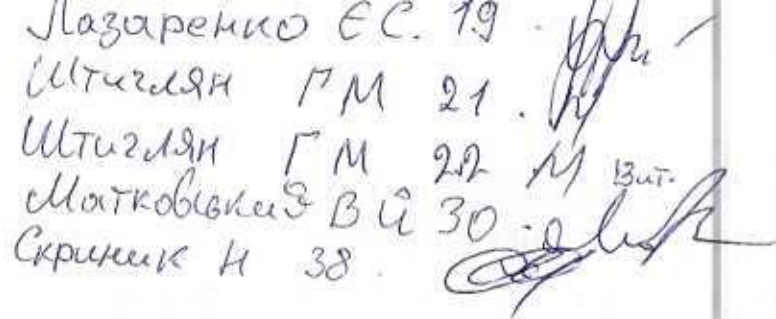 Лазаренко ЄС. 19.
Штиглян ГМ 21.
Штиглян ГМ 22 М Вит.
Матковський В Й 30.
Скриник Н 38.